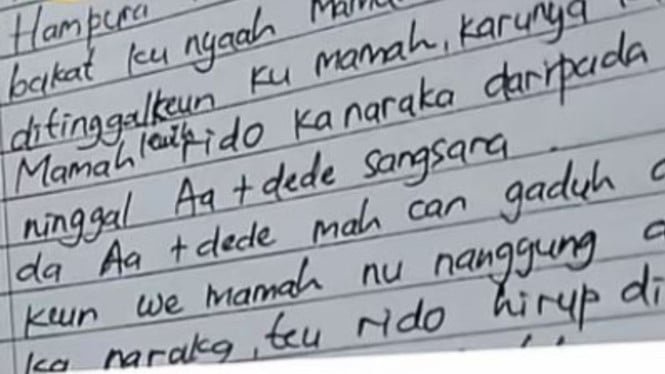 Hampura
bakat ku nyaah Mama
ditinggalkeun ku mamah, karunya
Mamah leuih rido ka naraka daripada
ninggal Aa + dede sangsara.
da Aa + dede mah can gaduh d
keun we mamah nu nanggung d
ka naraka, teu rido hirup di